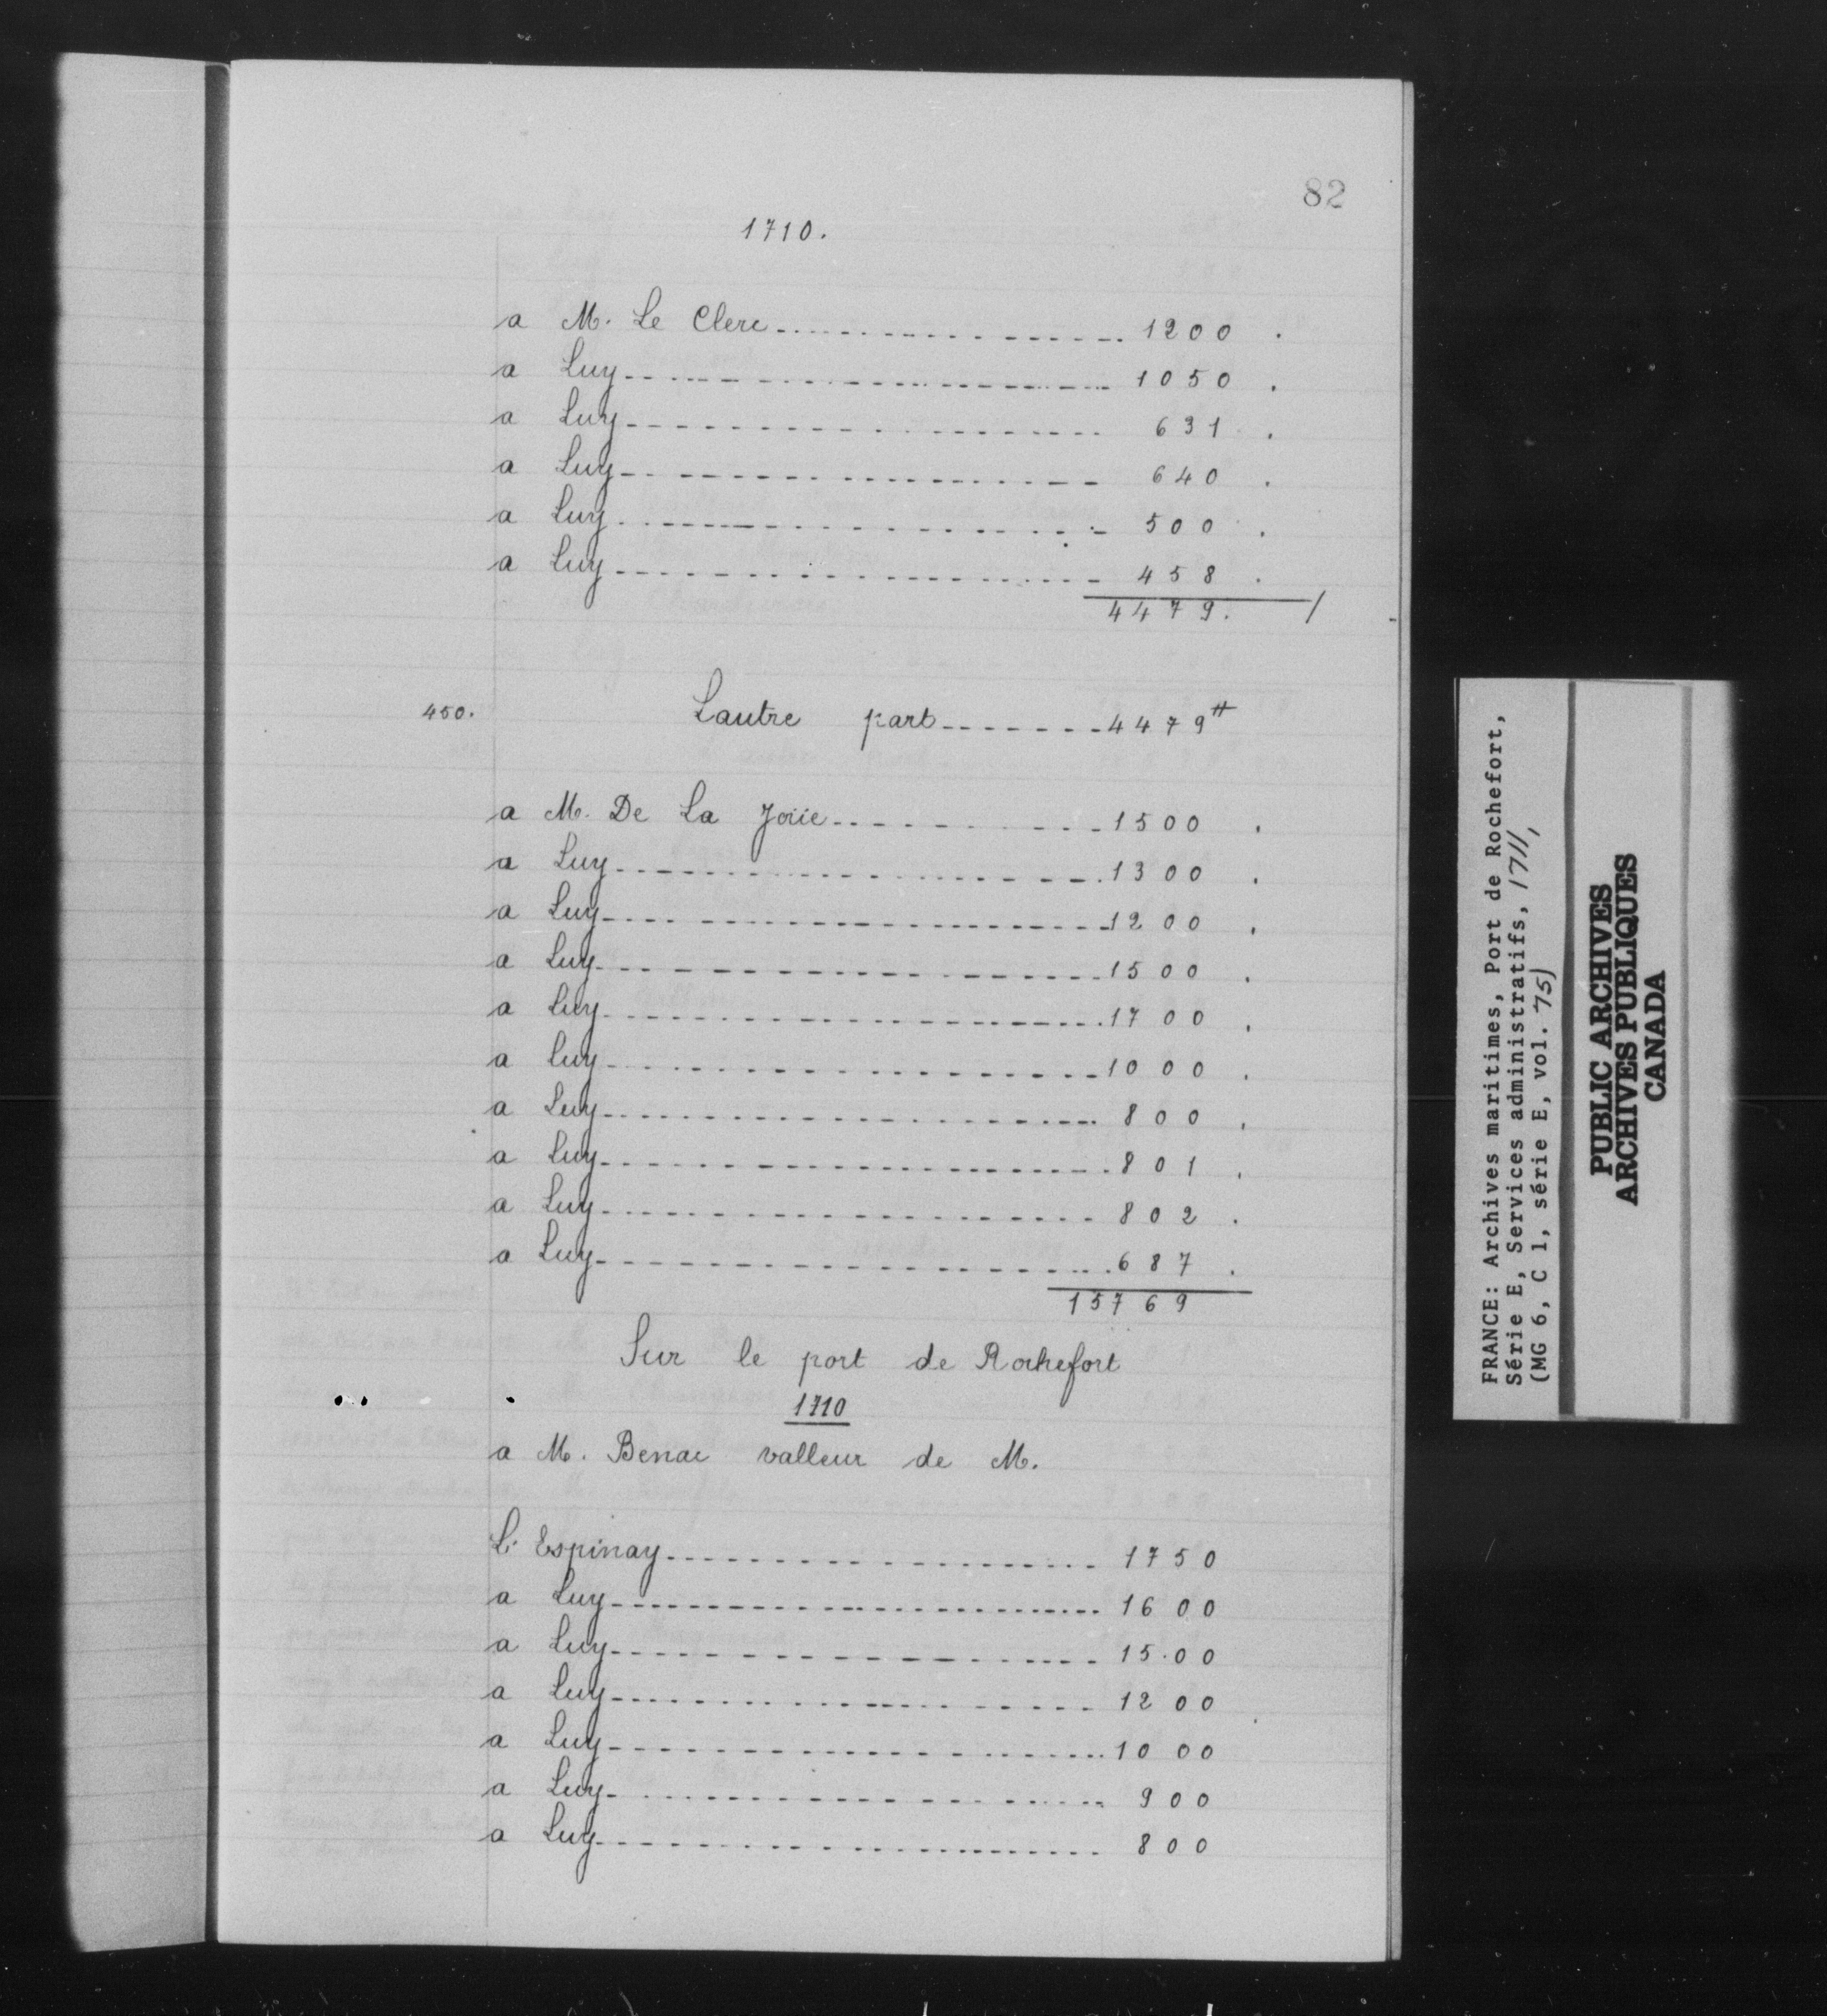 82
1710.
a M. Le Clerc 1200
a Luy 1050
a Luy 631
a Luy 640
a Luy 500
a Luy 458
4479.
450. Lautre part 4479 ₶
a M. De La Joüe 1500
a Luy 1300
a Luy 1200
a Luy 1500
a Luy 1700
a Luy 1000
a Luy 800
a Luy 801
a Luy 802
a Luy 687
15769
Sur le port de Rochefort
1710
a M. Benac valleur de M.
L'Espinay 1750
a Luy 1600
a Luy 1500
a Luy 1200
a Luy 1000
a Luy 900
a Luy 800
FRANCE: Archives maritimes, Port de Rochefort,
Série E, Services administratifs, 1711,
(MG 6, C 1, série E, vol. 75)
PUBLIC ARCHIVES
ARCHIVES PUBLIQUES
CANADA